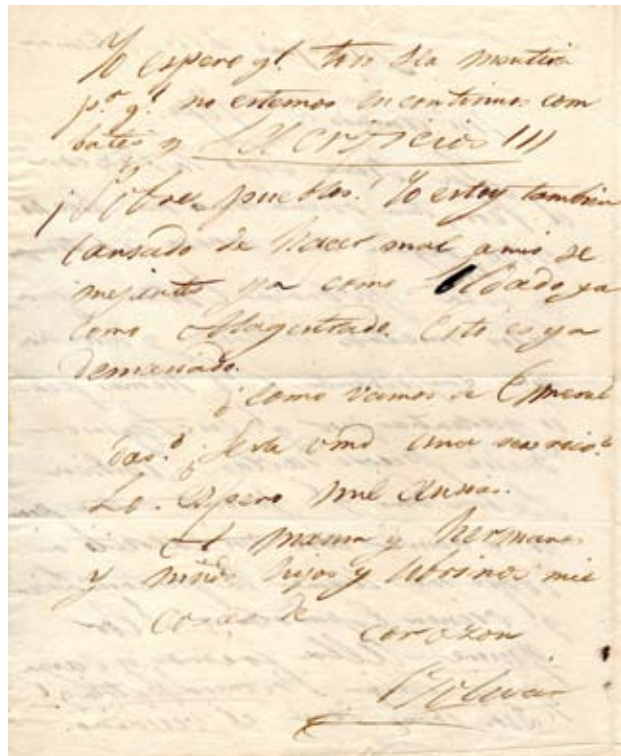 Yo espero q.e todo sea mentira
p.a q.e no estemos en continuos com
bates y sacrificios!!!
¡Pobres pueblos! Yo estoy tambien
cansado de hacer mal a mis se
mejantes ya como Soldado ya
como Magistrado. Esto es ya
demasiado.
¿Como vamos de Esmeral
das? ¿Sera Vmd una
Lo espero mil ansias.
A mama y hermanas
y niños hijos y sobrinos mil
cosas de
corazon
Bolivar